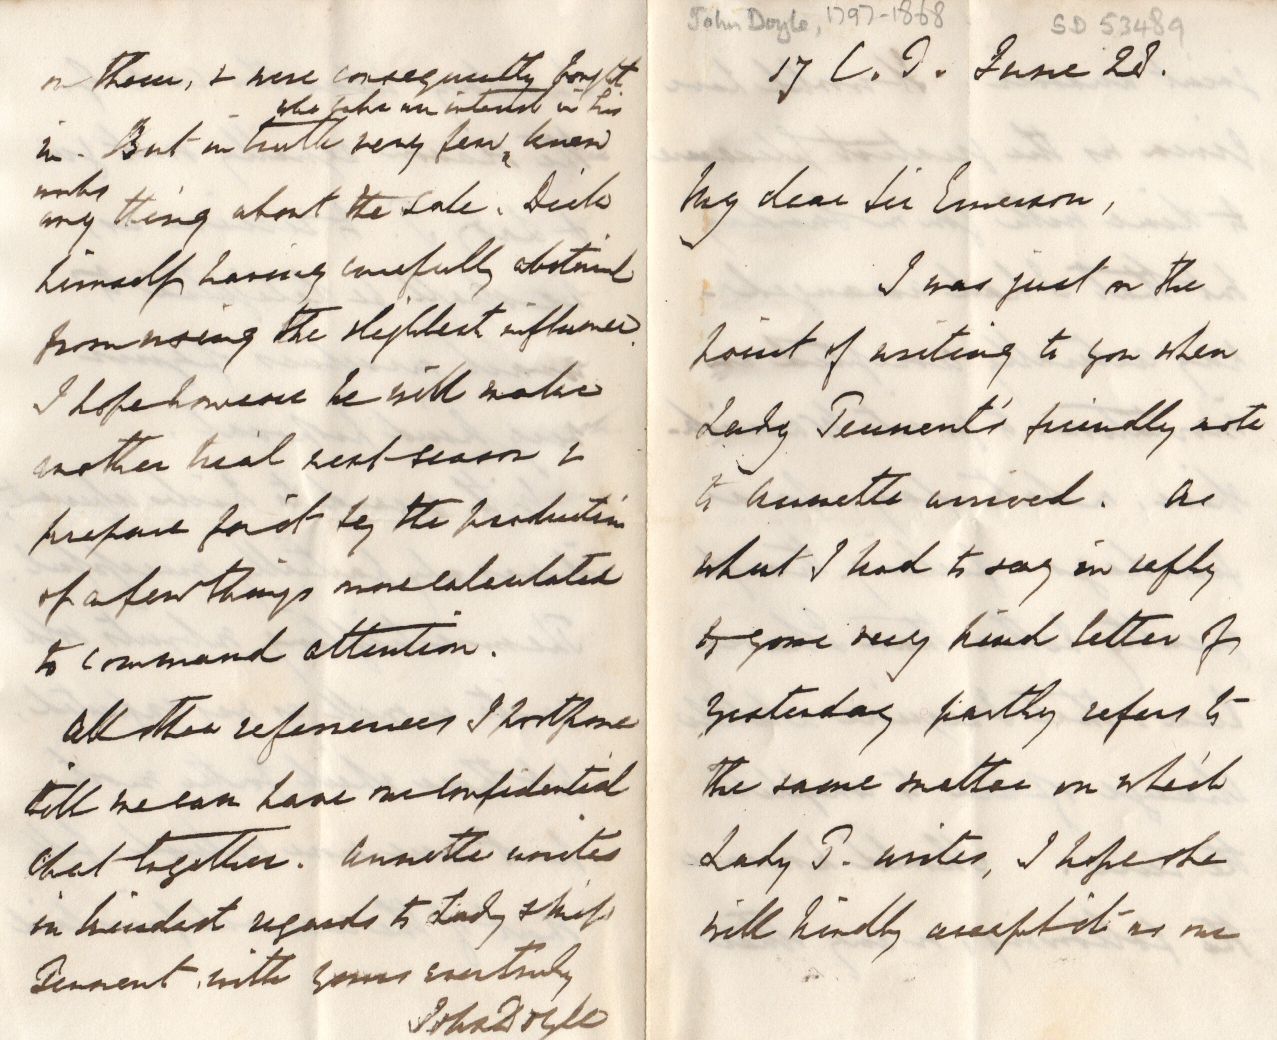 John Doyle, 1797-1868
SD 53489
17 C. T. June 28.
My dear Sir Emerson,
I was just on the
point of writing to you when
Lady Tennent's friendly note
to Annette arrived. As
what I had to say in reply
to your very kind letter of
yesterday partly refers to
the same matter on which
Lady T. writes, I hope she
will kindly accept it as one
on them, & were consequently bought
who take an interest in his
in. But in truth very few ‸ knew
works
any thing about the sale. Dick
himself having carefully abstained
from using the slightest influence.
I hope however he will make
another trial next season &
prepare for it by the production
of a few things more calculated
to command attention.
All other references I postpone
till we can have one confidential
chat together. Annette unites
in kindest regards to Lady & Miss
Tennent with yours ever truly
John Doyle